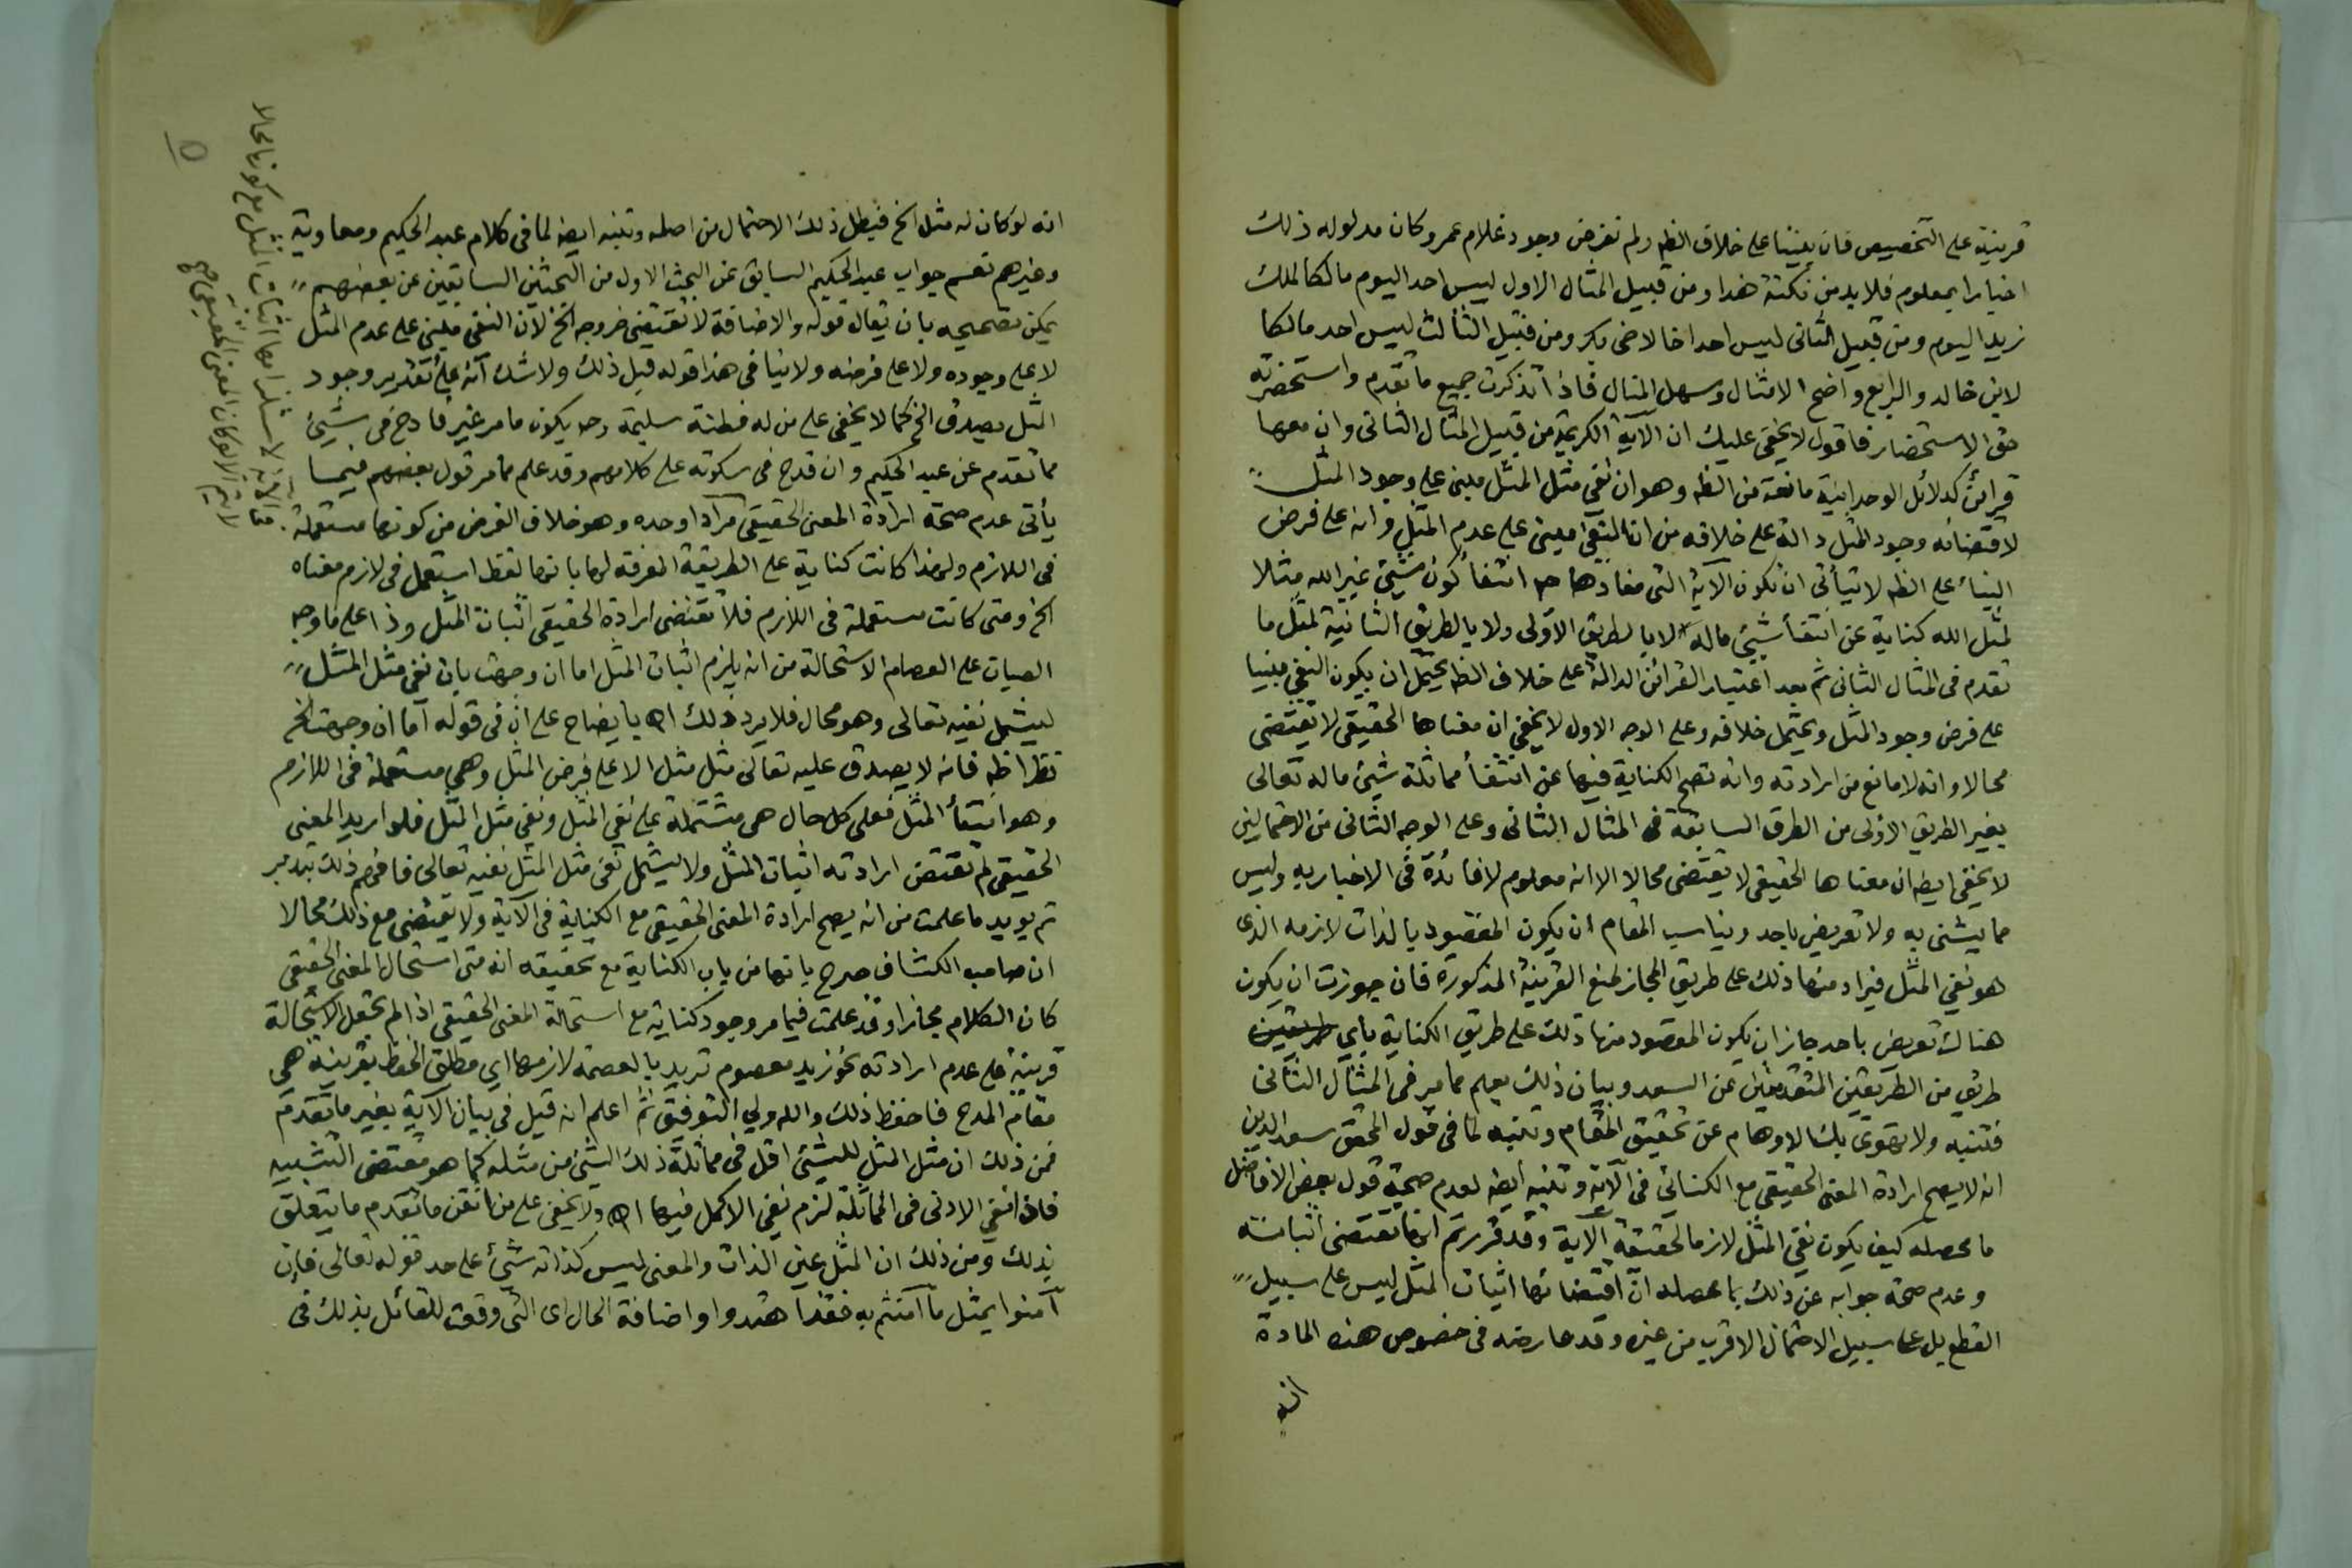 قرينة على التخصيص فان بنينا على خلاف الظه ولم نفرض وجود غلام عمرو كان مدلوله ذلك
اخبارا بمعلوم فلا بد من نكتة هذا ومن قبيل المثال الاول ليس احد اليوم مالكا لملك
زيد اليوم ومن قبيل الثانى ليس احد اخا لاخى بكر ومن قبيل الثالث ليس احد مالكا
لابن خالد والرابع واضح الامثال وسهل المنال فاذا تذكرت جميع ما تقدم واستحضرته
حق الاستحضار فاقول لا يخفى عليك ان الآية الكريمة من قبيل المثال الثانى وان معها
قرائن كدلائل الوحدانية مانعة من الظه وهو ان نفي مثل المثل مبنى على وجود المثل
لاقتضائه وجود المثل دالة على خلافه من ان النفى مبنى على عدم المثل وانه على فرض
البناء على الظه لا يتأتى ان تكون الآية التى مفادها ح انتفأ كون شيئ غير الله مثلا
لمثل الله كناية عن انتفأ شيئ ماله لا بالطريق الاولى ولا بالطريق الثانية لمثل ما
تقدم فى المثال الثانى ثم بعد اعتبار القرائن الدالة على خلاف الظه يحتمل ان يكون النفى مبنيا
على فرض وجود المثل ويحتمل خلافه وعلى الوجه الاول لا يخفى ان معناها الحقيقى لا يقتضى
محالا وانه لا مانع من ارادته وانه تصح الكناية فيها عن انتفأ مماثلة شيئ ماله تعالى
بغير الطريق الاولى من الطرق السابقة فى المثال الثانى وعلى الوجه الثانى من الاحتمالين
لا يخفى ايضه ان معناها الحقيقى لا يقتضى محالا الا انه معلوم لا فائدة فى الاخبار به وليس
مما يشنى به ولا تعريض باحد ويناسب المقام ان يكون المقصود بالذات لازمه الذى
هو نفي المثل فيراد منها ذلك على طريق المجاز لمنع القرينة المذكورة فان جوزت ان يكون
هناك تعريض باحد جاز ان يكون المقصود منها ذلك على طريق الكناية باي طريقين
طريق من الطريقين المتقدمين عن السعد وبيان ذلك يعلم مما مر فى المثال الثانى
فتنبه ولا تهوى بك الاوهام عن تحقيق المقام وتنبه لما فى قول المحقق سعد الدين
انه لا يصح ارادة المعنى الحقيقى مع الكنائى فى الآية وتنبه ايضه لعدم صحة قول بعض الافاضل
ما محصله كيف يكون نفي المثل لازما لحقيقة الآية وقد قررتم انها تقتضى اثباته
وعدم صحة جوابه عن ذلك بما محصله ان اقتضائها اثبات المثل ليس على سبيل
القطع بل على سبيل الاحتمال الاقرب من غيره وقد عارضه فى خصوص هذه المادة
انه
انه لو كان له مثل الخ فيبطل ذلك الاحتمال من اصله وتنبه ايضه لما فى كلام عبد الحكيم ومعاوية
وغيرهم نعم جواب عبد الحكيم السابق عن البحث الاول من البحثين السابقين عن بعضهم
يمكن تصحيحه بان يقال قوله والاضافة لا تقتضى خروجه الخ لان النفى مبنى على عدم المثل
لا على وجوده ولا على فرضه ولا ينافى هذا قوله قبل ذلك ولا شك انه على تقدير وجود
المثل يصدق الخ كما لا يخفى على من له فطنة سليمة وح يكون ما مر غير قادح فى شيئ
مما تقدم عن عبد الحكيم وان قدح فى سكوته على كلامهم وقد علم مما مر قول بعضهم فيما
يأتى عدم صحة ارادة المعنى الحقيقى مرادا وحده وهو خلاف الفرض من كونها مستعملة
فى اللازم ولهذا كانت كناية على الطريقة المعرفة لها بانها لفظ استعمل فى لازم معناه
الخ ومتى كانت مستعملة فى اللازم فلا تقتضى ارادة الحقيقى اثبات المثل وذا على ما وجه
الصبان على العصام الاستحالة من انه يلزم اثبات المثل اما ان وجهت بان نفى مثل المثل
ليشمل نفيه تعالى وهو محال فلا يرد ذلك اه بايضاح على ان فى قوله اما ان وجهت الخ
نظرا ظه فانه لا يصدق عليه تعالى مثل مثل الا على فرض المثل وهى مستعملة فى اللازم
وهو انتفأ المثل فعلى كل حال هى مشتملة على نفي المثل ونفي مثل المثل فلو اريد المعنى
الحقيقى لم تقتض ارادته اثبات المثل ولا يشمل نفى مثل المثل نفيه تعالى فافهم ذلك بتدبر
ثم يويد ما علمت من انه يصح ارادة المعنى الحقيقى مع الكناية فى الآية ولا يقتضى مع ذلك محالا
ان صاحب الكشاف صرح بانها من باب الكناية مع تحقيقه انه متى استحال المعنى الحقيقى
كان الكلام مجازا وقد علمت فيما مر وجود كناية مع استحالة المعنى الحقيقى اذا لم تجعل الاستحالة
قرينة على عدم ارادته نحو زيد معصوم تريد بالعصمة لازمها اي مطلق الحفظ بقرينة هى
مقام المدح فاحفظ ذلك والله ولي التوفيق ثم اعلم انه قيل فى بيان الآية بغير ما تقدم
فمن ذلك ان مثل المثل للشئ اقل فى مماثلة ذلك الشئ من مثله كما هو مقتضى التشبيه
فاذا انتفى الادنى فى المماثلة لزم نفي الاكمل فيها اه ولا يخفى على من اتقن ما تقدم ما يتعلق
بذلك ومن ذلك ان المثل عين الذات والمعنى ليس كذاته شئ على حد قوله تعالى فان
آمنوا بمثل ما آمنتم به فقد اهتدوا واضافة الحال اى التى وقعت للقائل بذلك فى